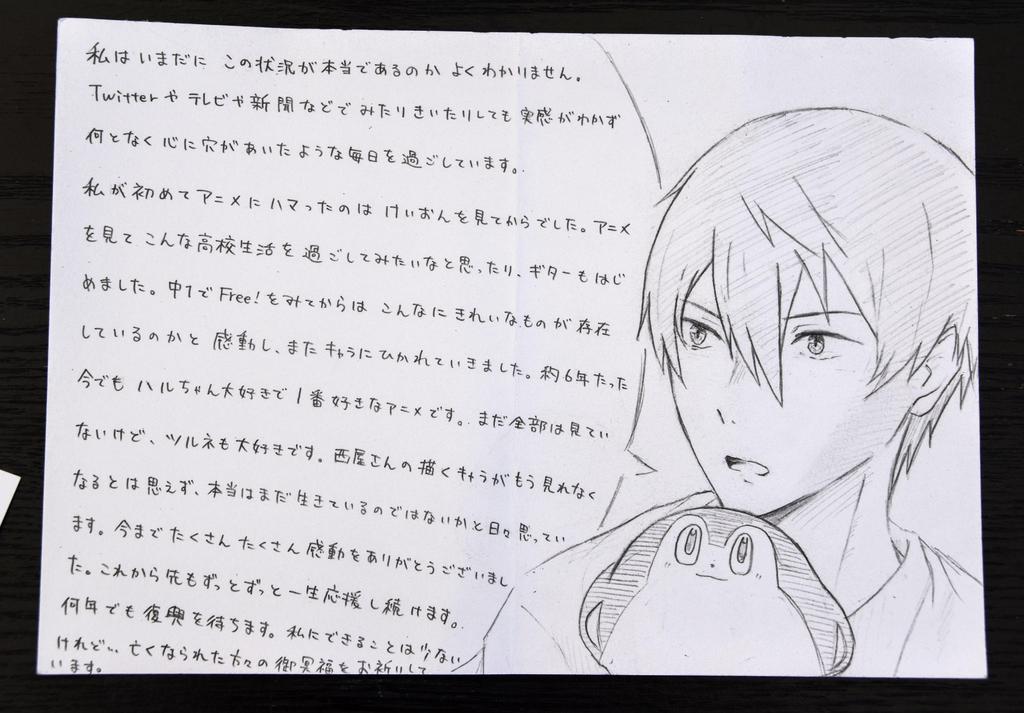 私はいまだに この状況が本当であるのか よくわかりません。
Twitterや テレビや新聞などで みたりきいたりしても 実感がわかず
何となく 心に穴があいたような毎日を過ごしています。
私が初めてアニメにハマったのは けいおんを見てからでした。アニメ
を見て こんな高校生活を過ごしてみたいなと思ったり、ギターもはじ
めました。中1でFree!をみてからは こんなに きれいなものが 存在
しているのかと 感動し、また キャラに ひかれていきました。約6年たった
今でも ハルちゃん大好きで 1番好きなアニメです。まだ全部は見てい
ないけど、ツルネも大好きです。西屋さんの描くキャラがもう見れなく
なるとは思えず、本当はまだ生きているのではないかと日々思ってい
ます。今まで たくさん たくさん 感動をありがとうございまし
た。これから先もずっとずっと一生応援し続けます。
何年でも復興を待ちます。私にできることは少ない
けれど… 亡くなられた方々の御冥福をお祈りして
います。